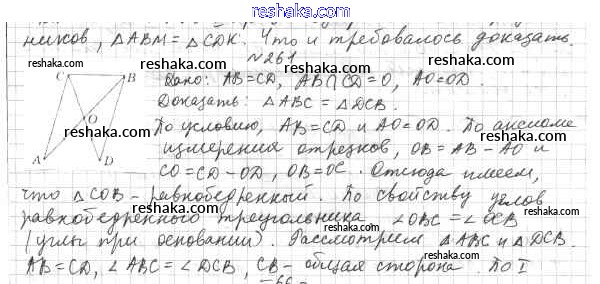 reshaka.com
ников, △ABM = △CDK. Что и требовалось доказать.
№ 261
Дано: AB=CD, AB∩CD=O, AO=OD.
Доказать: △ABC = △DCB.
По условию, AB=CD и AO=OD. По аксиоме
измерения отрезков, OB = AB - AO и
CO = CD - OD, OB = OC. Отсюда имеем,
что △COB - равнобедренный. По свойству углов
равнобедренного треугольника ∠OBC = ∠OCB
(углы при основании). Рассмотрим △ABC и △DCB.
AB=CD, ∠ABC = ∠DCB, CB - общая сторона. По I
- 66 -
C B
O
A D
reshaka.com
reshaka.com
reshaka.com
reshaka.com
reshaka.com
reshaka.com
reshaka.com
reshaka.com
reshaka.com
reshaka.com
reshaka.com
reshaka.com